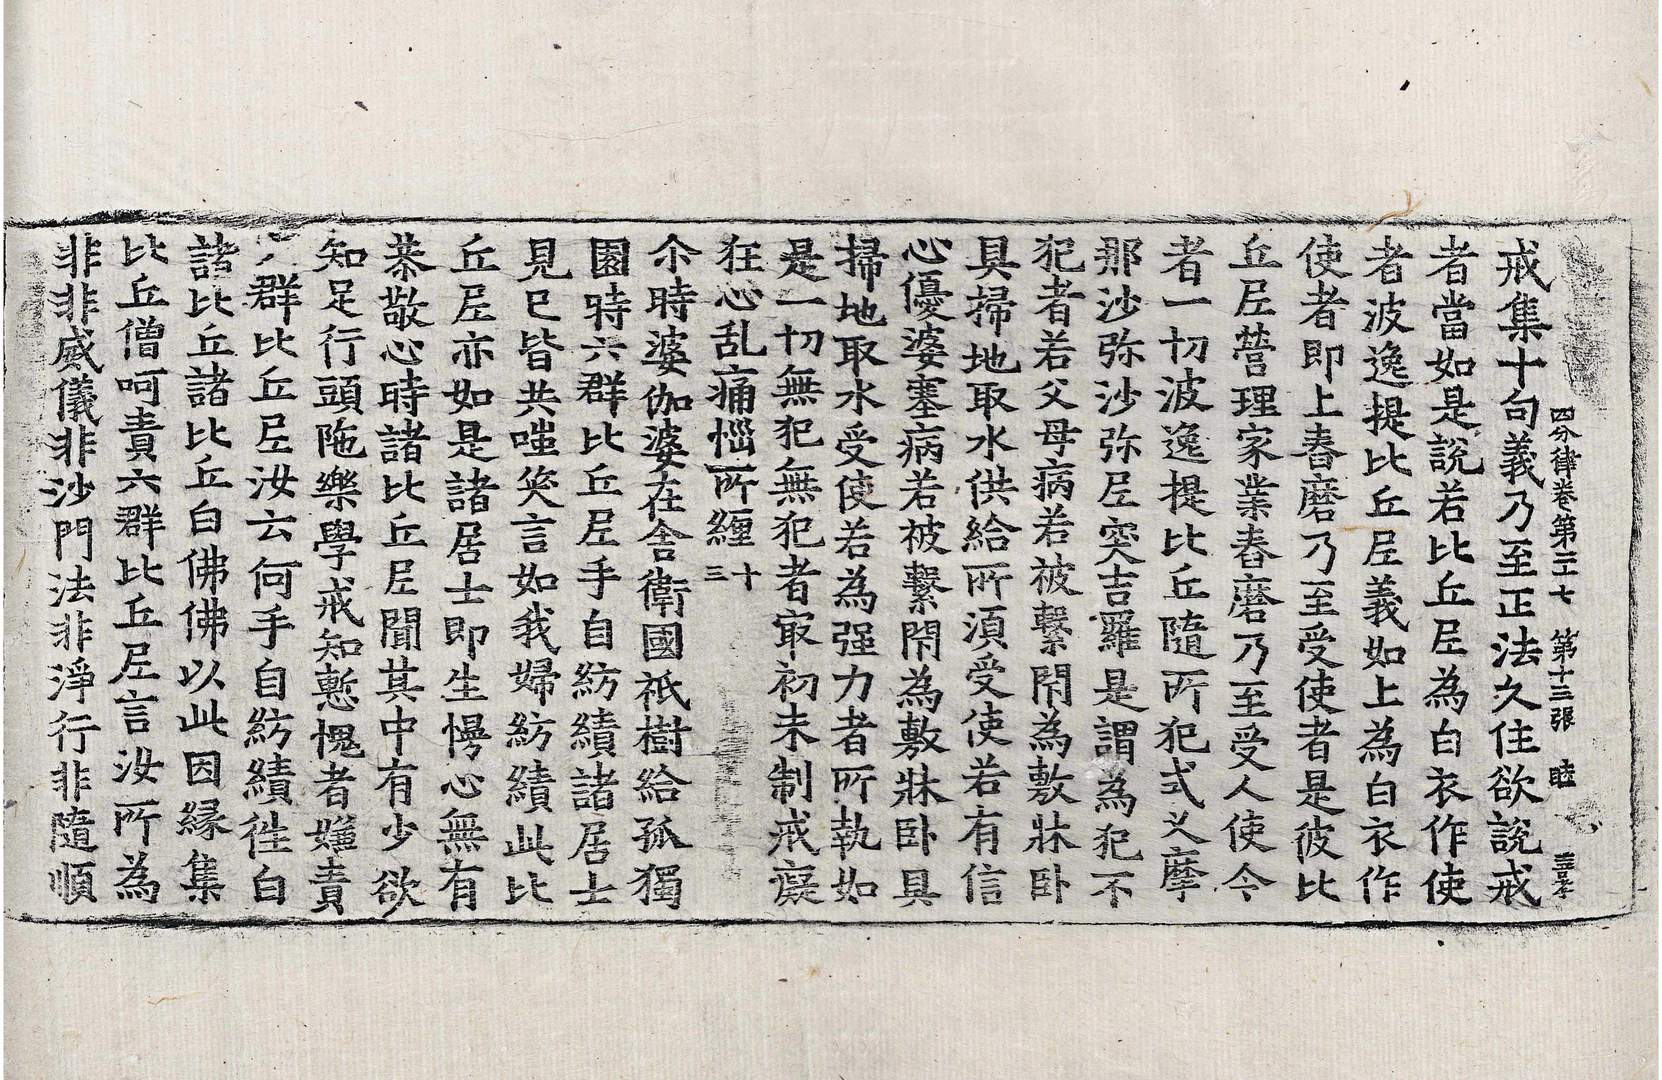 四分律卷第二十七 第十三張 睦
戒集十句義乃至正法久住欲說戒
者當如是說若比丘尼為白衣作使
者波逸提比丘尼義如上為白衣作
使者即上舂磨乃至受使者是彼比
丘尼營理家業舂磨乃至受人使令
者一切波逸提比丘隨所犯式叉摩
那沙弥沙弥尼突吉羅是謂為犯不
犯者若父母病若被繫閇為敷牀卧
具掃地取水供給所須受使若有信
心優婆塞病若被繫閇為敷牀卧具
掃地取水受使若為强力者所執如
是一切無犯無犯者㝡初未制戒癡
狂心乱痛惱所纏十三
尒時婆伽婆在舍衛國祇樹給孤獨
園時六群比丘尼手自紡績諸居士
見已皆共嗤笑言如我婦紡績此比
丘尼亦如是諸居士即生慢心無有
恭敬心時諸比丘尼聞其中有少欲
知足行頭陁樂學戒知慙愧者嫌責
六群比丘尼汝云何手自紡績徃白
諸比丘諸比丘白佛佛以此因緣集
比丘僧呵責六群比丘尼言汝所為
非非威儀非沙門法非淨行非隨順